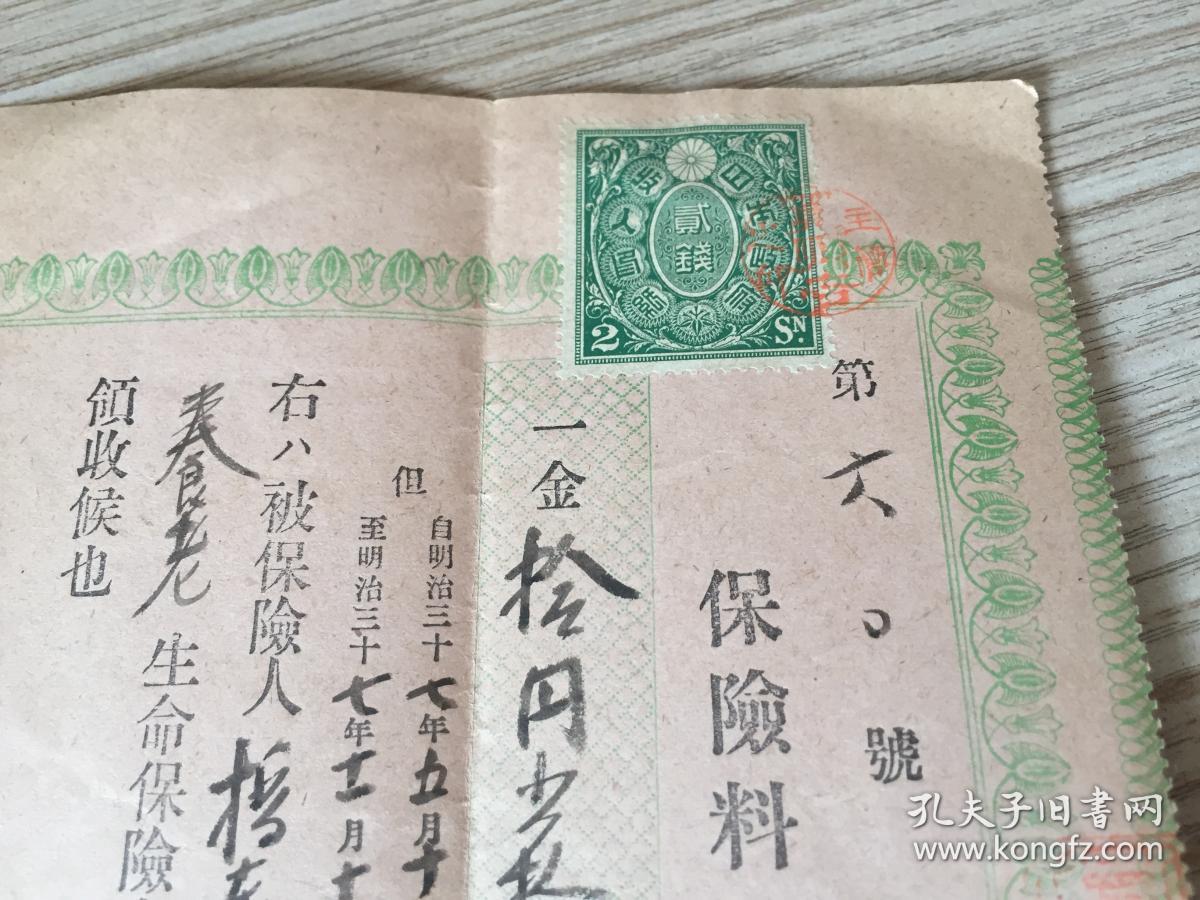 貳錢
2 SN.
第六〇號
保險料
一金拾円
但
自明治三十七年五月十
至明治三十七年十一月十
右ハ被保險人
養老生命保險
領收候也
孔夫子旧书网
www.kongfz.com